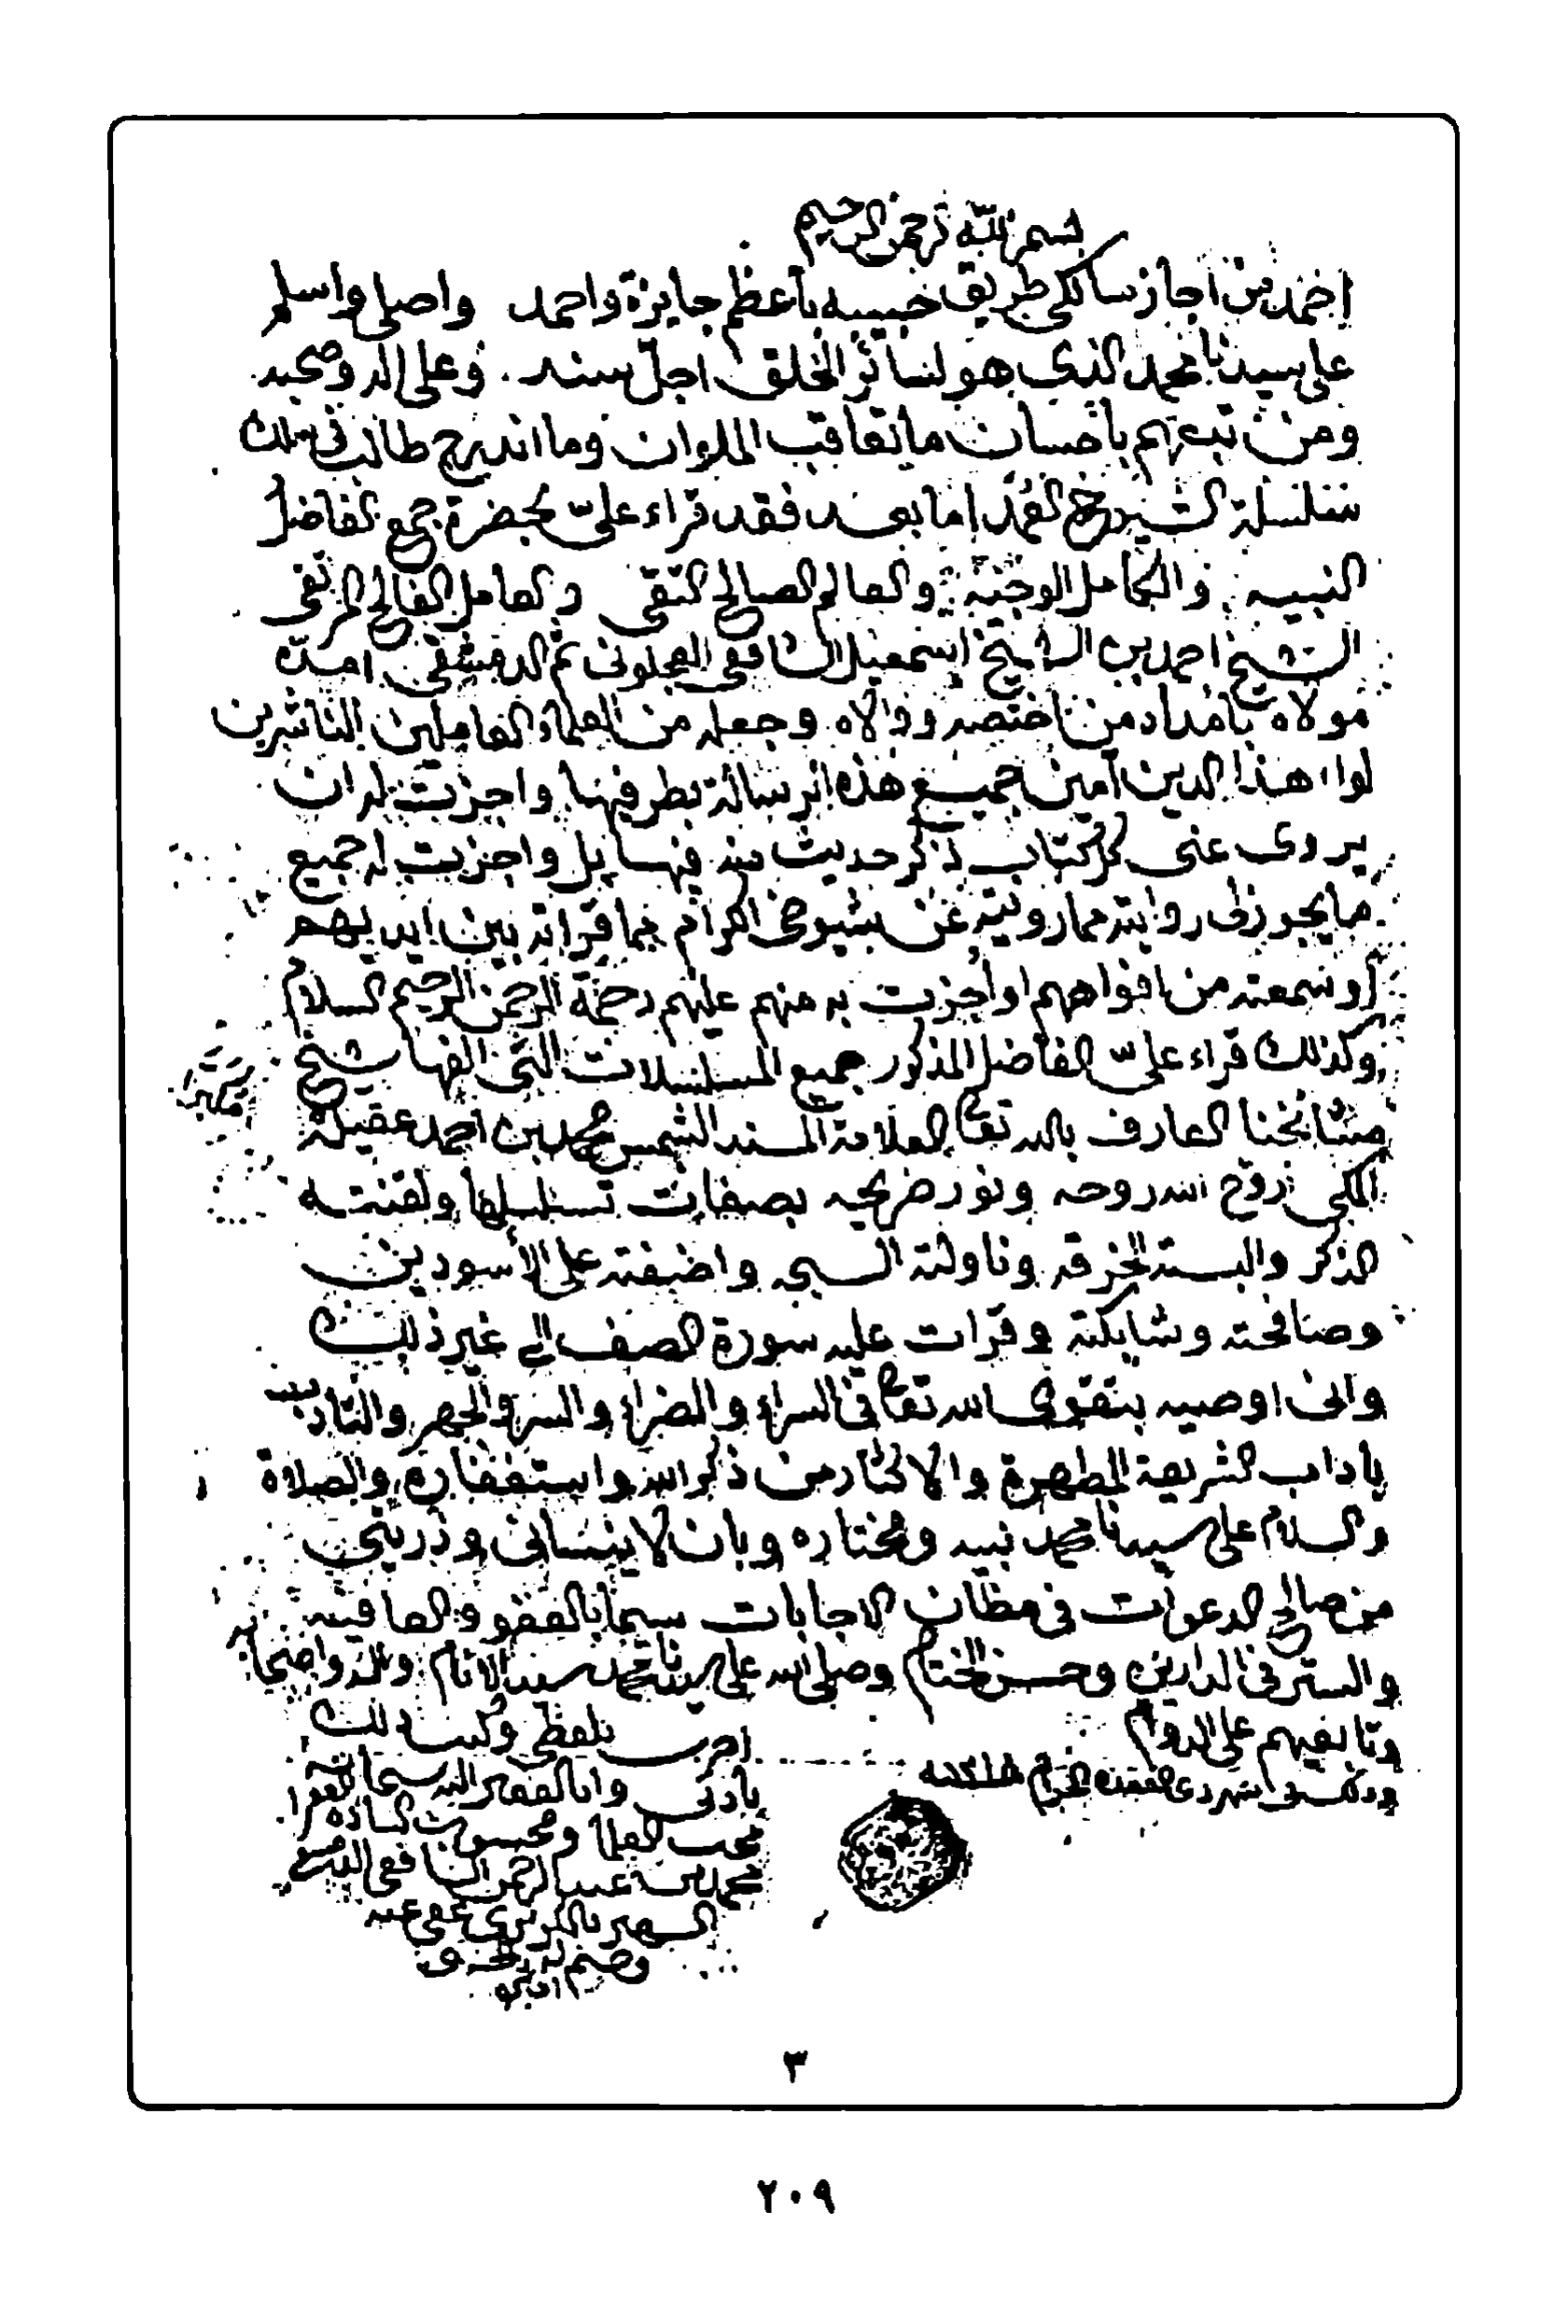 بسم الله الرحمن الرحيم
احمد من اجاز سالكي طريق حبيبه باعظم جايزة واحمد واصلي واسلم
على سيدنا محمد الذي هو لسائر الخلق اجل سند . وعلى اله وصحبه
ومن تبعهم باحسان ما تعاقب الملوان وما اندرج طالب في سلك
سلسلة الشيوخ العمد اما بعد فقد قراء علي بحضرة جمع الفاضل
النبيه والكامل الوجيه والعالم الصالح التقي والعامل الفالح
الشيخ احمد بن الشيخ اسمعيل الشافعي العجلوني ثم الدمشقي امده
مولاه بامداد من اختصه ووالاه وجعله من العلماء العاملين الناشرين
لواء هذا الدين آمين جميع هذه الرسالة بطرفيها واجزت له ان
يروي عني كل كتاب ذكر حديث منه فيها بل واجزت له جميع
ما يجوز لي روايته مما رويته عن شيوخي الكرام مما قراته بين ايديهم
او سمعته من افواههم او اجزت به منهم عليهم رحمة الرحمن الرحيم السلام
وكذلك قراء علي الفاضل المذكور جميع المسلسلات التي الفها شيخ
مشائخنا العارف بالله تعالى العلامة المسند الشمس محمد بن احمد عقيلة
المكي روح الله روحه ونور ضريحه بصفات تسلسلها ولقنته
الذكر والبسته الخرقه وناولته السبحه واضفته على الأسودين
وصافحته وشابكته وقرات عليه سورة الصف الى غير ذلك
واني اوصيه بتقوى الله تعالى في السراء والضراء والسر والجهر والتاديب
باداب الشريعة المطهرة والاكثار من ذكر الله واستغفاره والصلاة
والسلام على سيدنا محمد نبيه ومختاره وبان لا ينساني وذريتي
من صالح الدعوات في مظان الاجابات سيما بالعفو والعافيه
والستر في الدارين وحسن الختام وصلى الله على سيدنا محمد سيد الانام واله واصحابه
وتابعيهم على الدوام
وذلك في شهر ذي القعدة الحرام
امرت بلفظي وكتب ذلك
باذني وانا الفقير اليه سبحانه
محب العلماء ومحسوب السادة
محمد بن عبد الرحمن الشافعي الدمشقي
الشهير بالكزبري عفي عنه
٣
٢٠٩